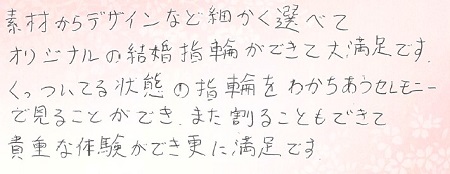 素材からデザインなど細かく選べて
オリジナルの結婚指輪ができて大満足です.
くっついてる状態の指輪をわかちあうセレモニー
で見ることができ.また割ることもできて
貴重な体験ができ更に満足です.